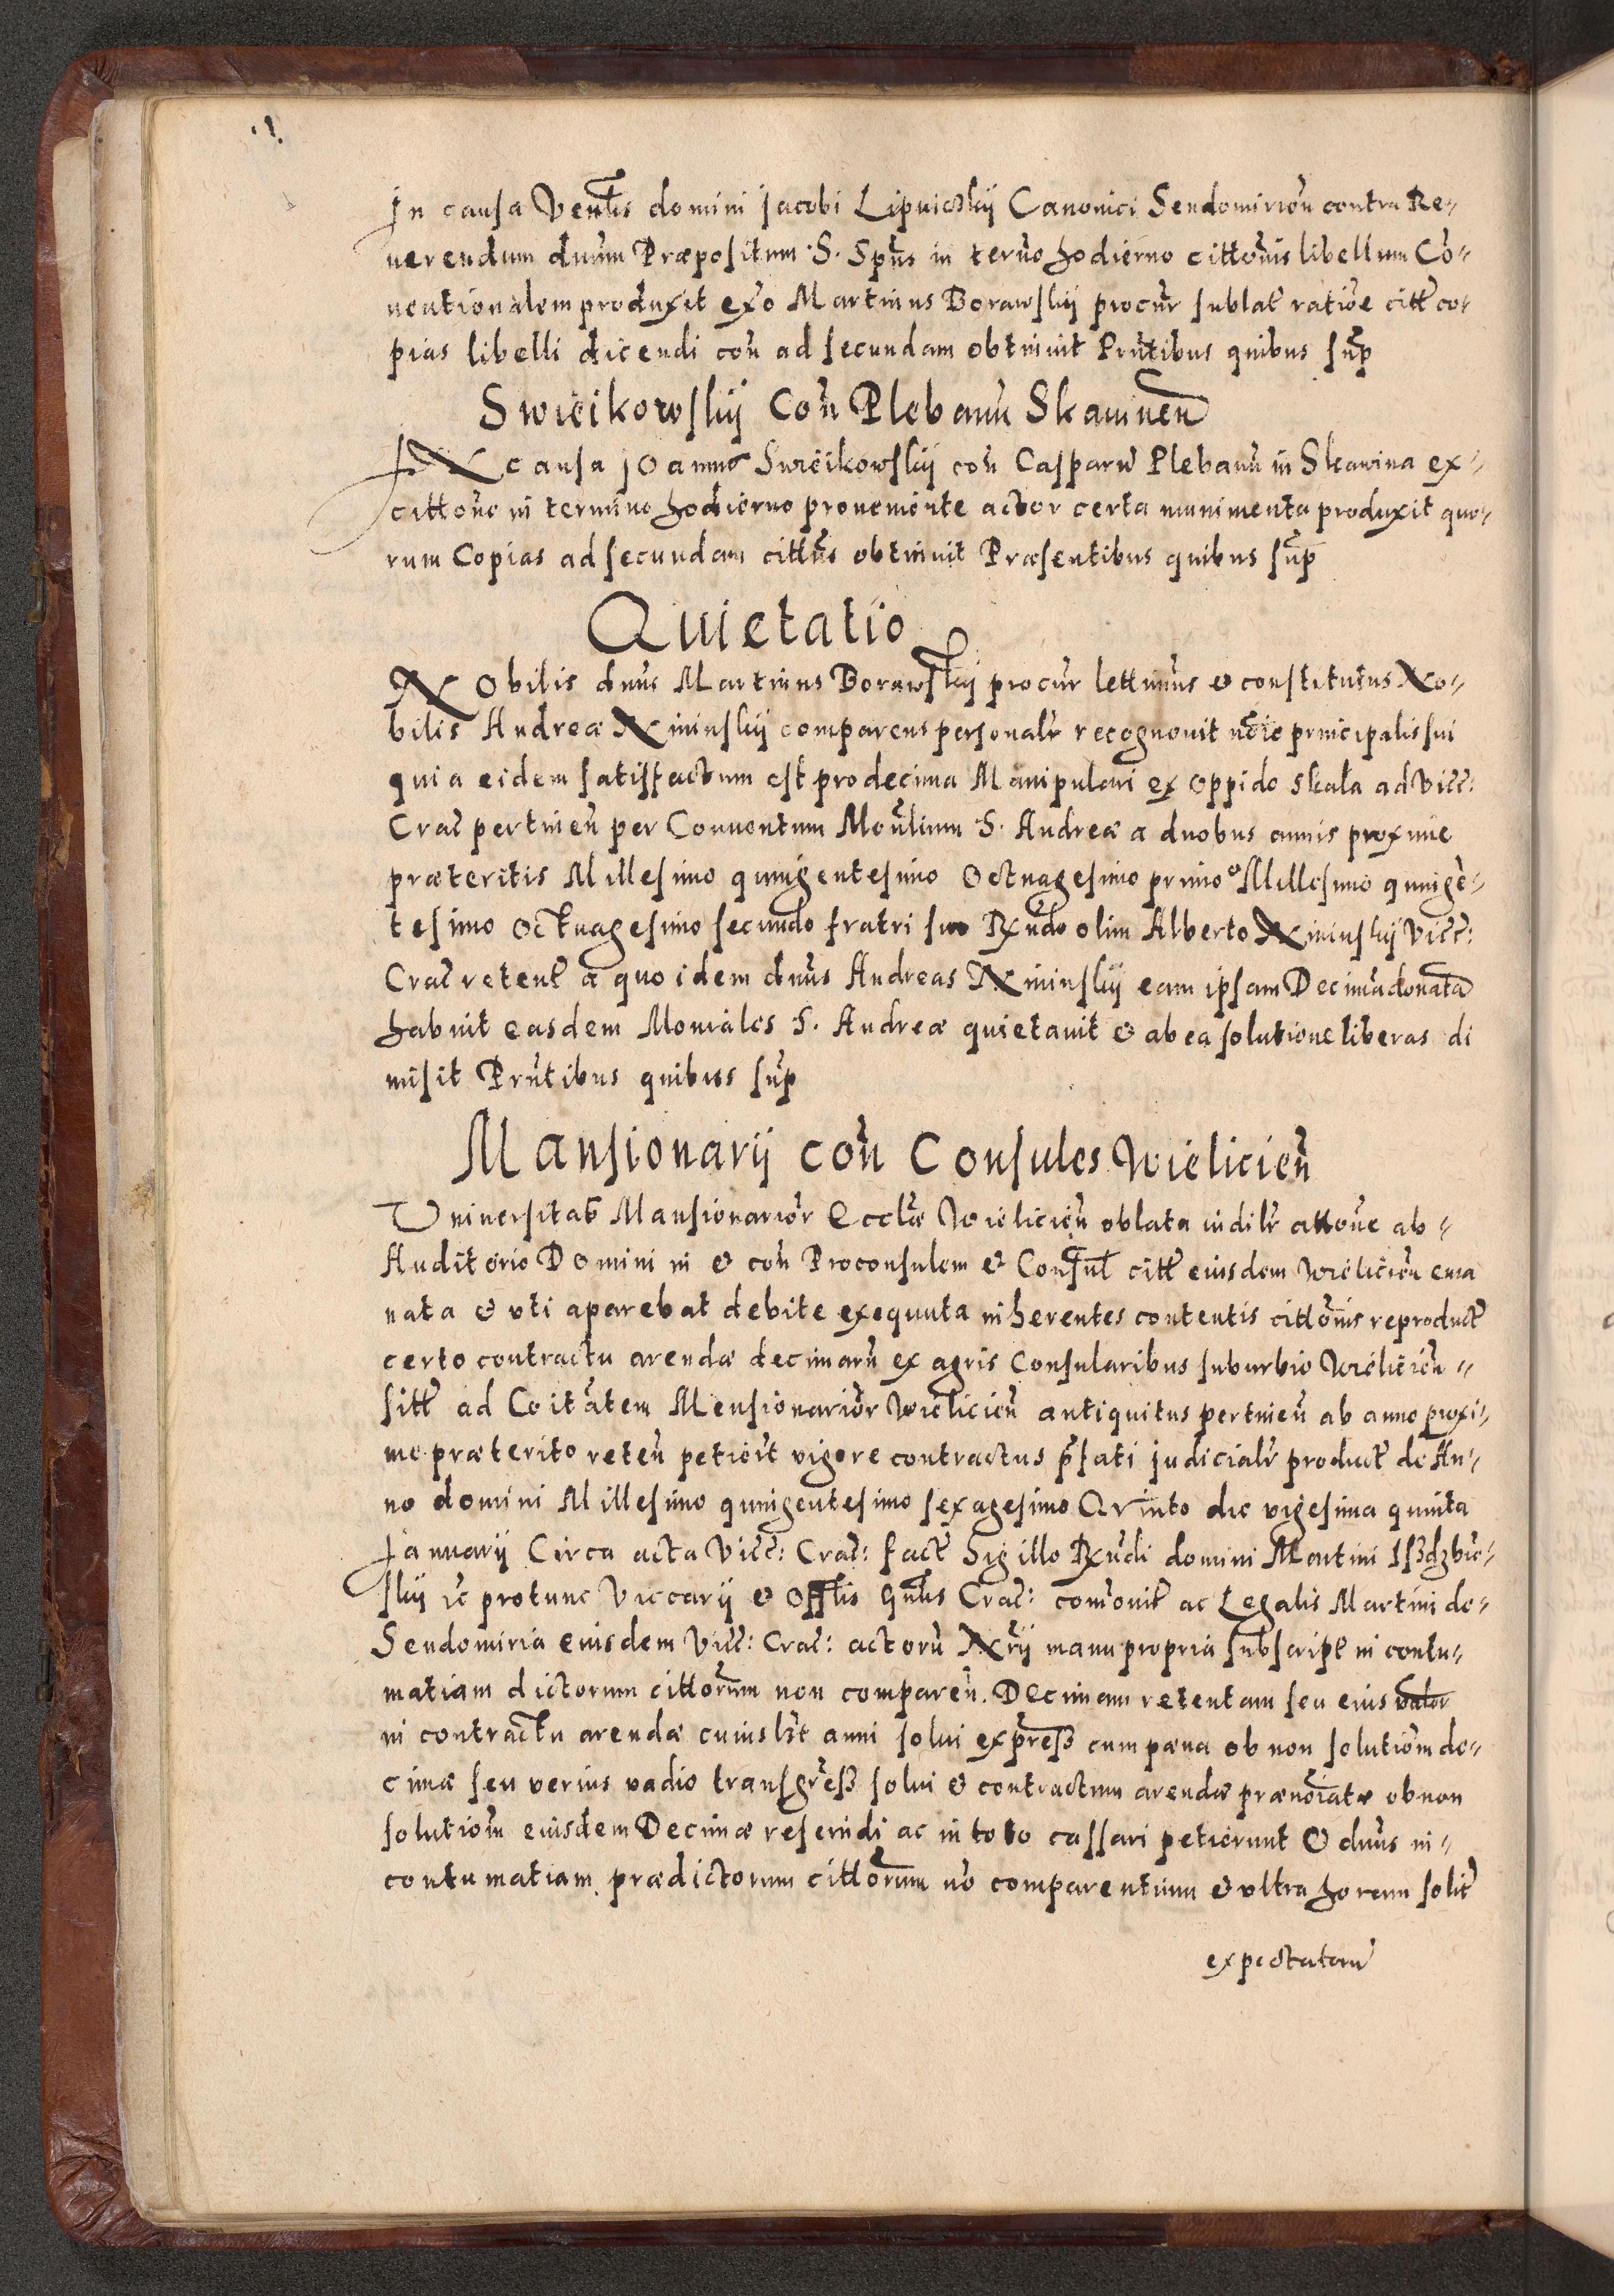 In causa Venlis domini Jacobi Lipnicskij Canonici Sendomirien contra Re-
uerendum dnum Præpositum S. Spns in termo hodierno cittonis libellum Co-
uentionalem produxit exo Martinus Borawskij procur sublat ratioe citt co-
pias libelli dicendi con ad secundam obtinuit Prntibus quibus sup
Swiëikowskij Con Plebanu Skawinen
IN causa Joannis Swiëikowskij con Casparu Plebanu in Skawina ex
cittone in termino hodierno proueniente actor certa munimenta produxit quo-
rum Copias ad secundam cittus obtinuit Præsentibus quibus sup
Quietatio
NObilis dnus Martinus Borawskij procur lettimus & constitutus No-
bilis Andreæ Nininskij comparens personalr recognouit noie principalis sui
quia eidem satisfactum est pro decima Manipulari ex oppido Skala ad Vicc:
Crac pertinen per Conuentum Monlium S. Andreæ a duobus annis proxime
præteritis Millesimo quingentesimo Octuagesimo primo & Millesimo quinge-
tesimo octuagesimo secundo fratri suo Rndo olim Alberto Nininskij Vicc:
Crac retent a quo idem dnus Andreas Nininskij eam ipsam Decima donata
habuit easdem Moniales S. Andreæ quietauit & ab ea solutione liberas di
misit Prntibus quibus sup
Mansionarij con Consules Wielicien
Vniuersitas Mansionarior Ecclæ Wielicien oblata iudilr attone ab-
Auditorio Domini in & con Proconsulem & Consul citt eiusdem Wielicien ema
nata & vti aparebat debite exequuta inherentes contentis cittonis reproduct
certo contractu arendæ decimaru ex agris Consularibus suburbio Wielicien
sitt ad Coitatem Mensionarior Wielicien antiquitus pertinen ab anno proxi-
me præterito reten petiert vigore contractus pfati judicialr product de An-
no domini Millesimo quingentesimo sexagesimo Qvinto die vigesima quinta
Januarij Circa acta Vicc: Crac: fact Sigillo Rndi domini Martini Iszdzbie-
skij &c protunc Viccarij & Offlis Gnlis Crac: comonit ac Legalis Martini de-
Sendomiria eiusdem Vicc: Crac: actoru Nrij manu propria subscript in contu-
matiam dictorum cittorum non comparen. Decimam retentam seu eius valor
in contractu arendæ cuiuslbt anni solui express cum pæna ob non solutiom de-
cimæ seu verius vadio transgress solui & contractum arendæ prænoiatæ ob non
solutiom eiusdem Decimæ rescindi ac in toto cassari petierunt & dnus in-
contumatiam prædictorum cittorum no comparentium & vltra horam solit
expectatoru